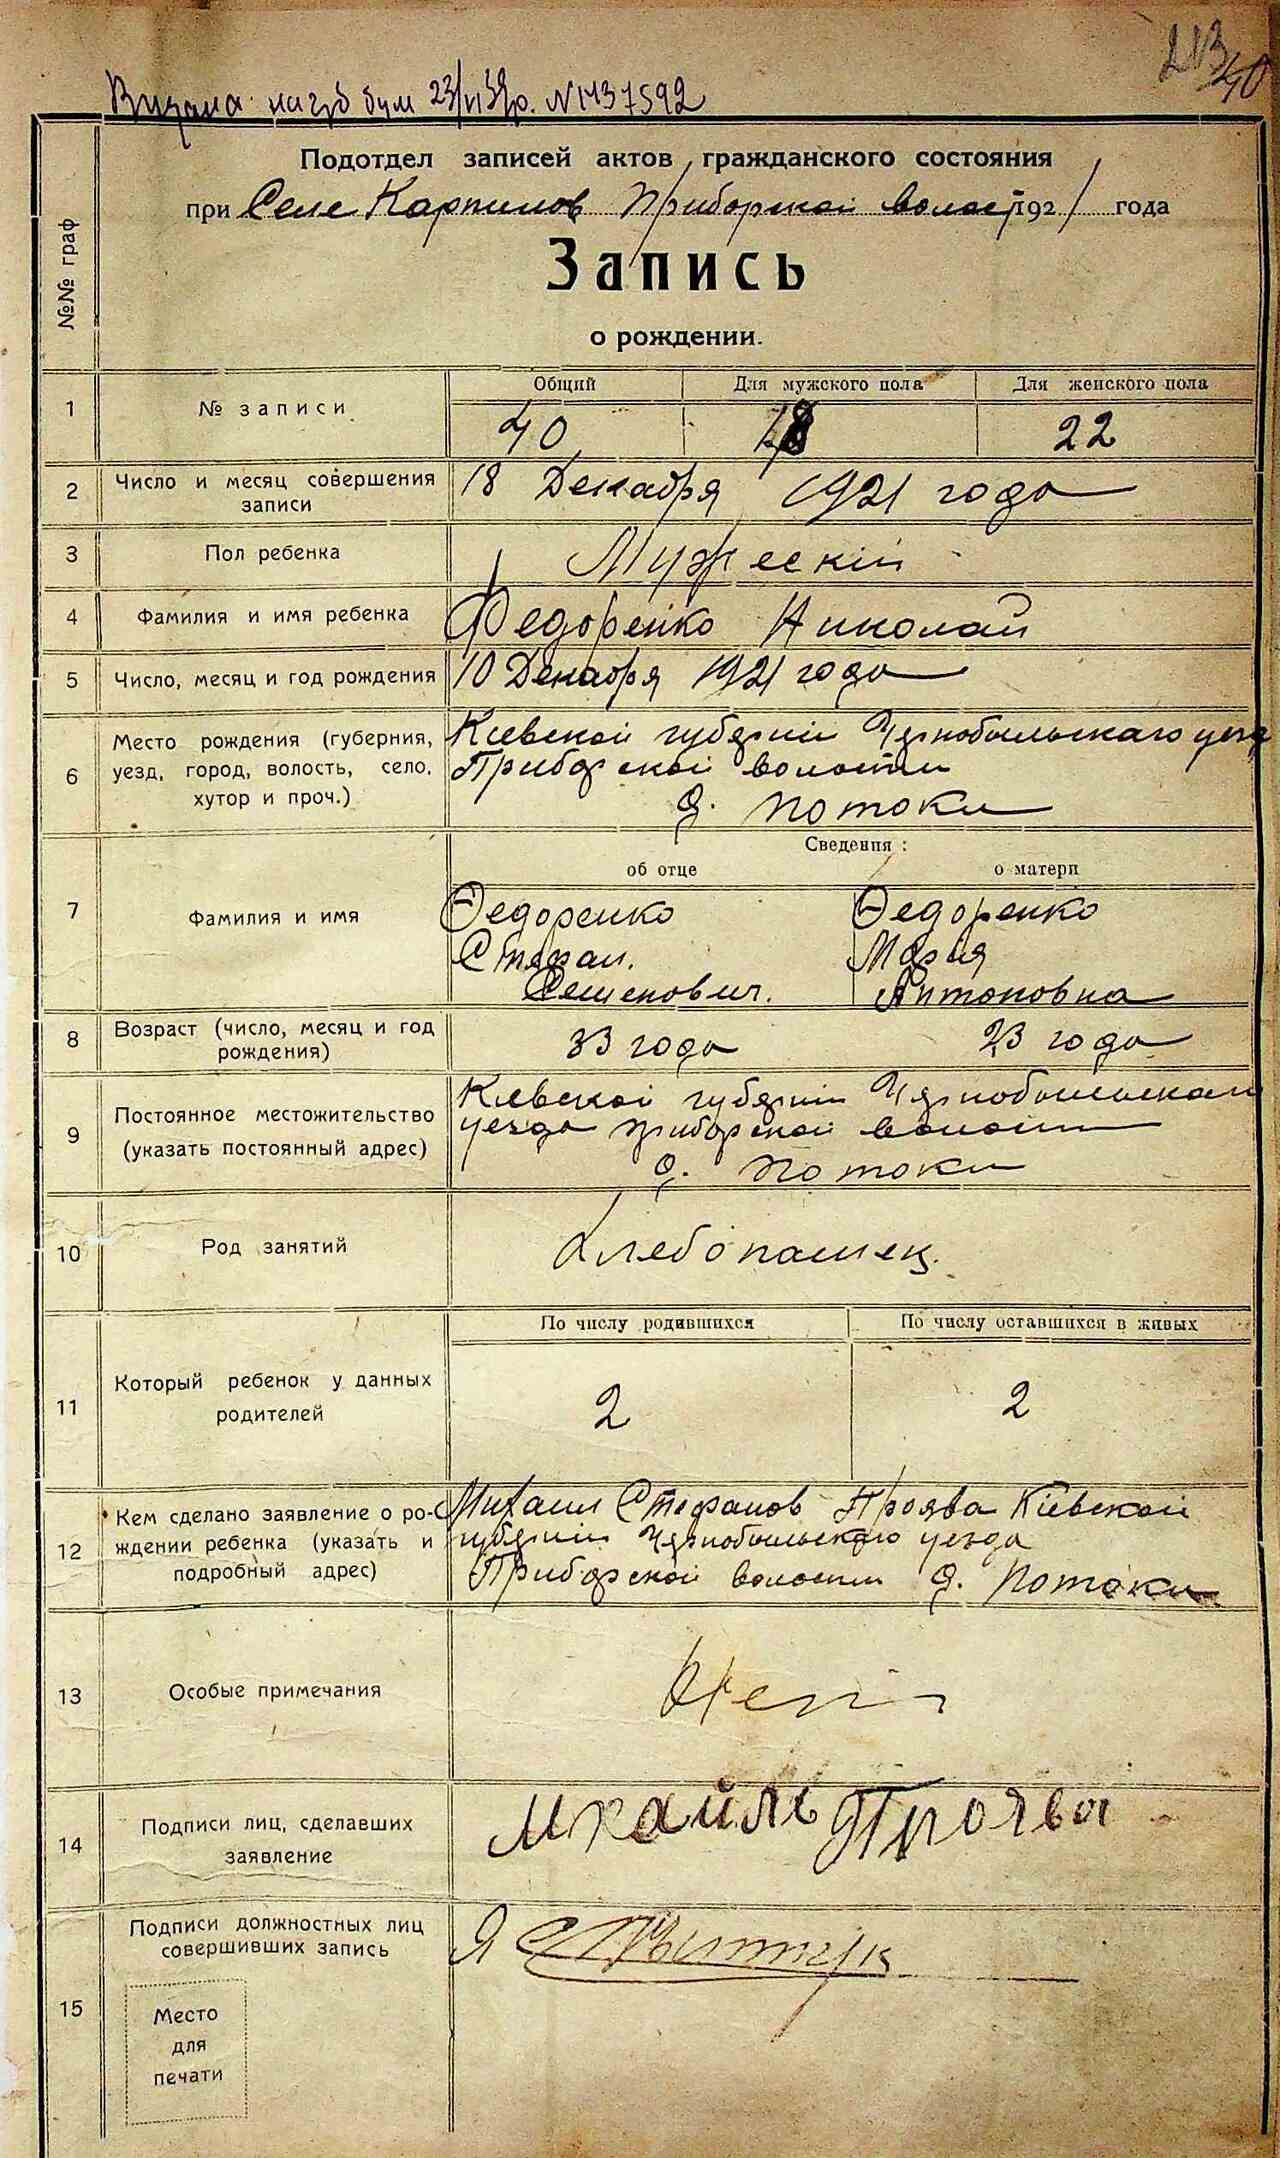 213
40
на гр б бум 23/VI 39р. № 1437592
Подотдел записей актов гражданского состояния
при Селе Карпилов Приборской волост 1921 года
Запись
о рождении.
№№ граф
Общий Для мужского пола Для женского пола
1 № записи 40 18 22
2 Число и месяц совершения
записи
18 Декабря 1921 года
3 Пол ребенка Мужеский
4 Фамилия и имя ребенка Федоренко Николай
5 Число, месяц и год рождения 10 Декабря 1921 года
6 Место рождения (губерния,
уезд, город, волость, село,
хутор и проч.)
Киевской губернии Чернобыльскаго уезд
Приборской волости
д. Потоки
Сведения:
об отце о матери
7 Фамилия и имя
Ѳедоренко Ѳедоренко
Стефан. Мария
Семенович. Антоновна
8 Возраст (число, месяц и год
рождения)
33 года 23 года
9 Постоянное местожительство
(указать постоянный адрес)
Киевской губернии Чернобыльскаго
уезда Приборской волости
д. Потоки
10 Род занятий Хлебопашец.
По числу родившихся По числу оставшихся в живых
11 Который ребенок у данных
родителей
2 2
12 Кем сделано заявление о ро-
ждении ребенка (указать и
подробный адрес)
Михаил Стефанов Проява Кіевской
губернии Чернобыльскаго уезда
Приборской волости д. Потоки
13 Особые примечания Нет
14 Подписи лиц, сделавших
заявление
Михайль Проява
15 Подписи должностных лиц
совершивших запись
Место
для
печати